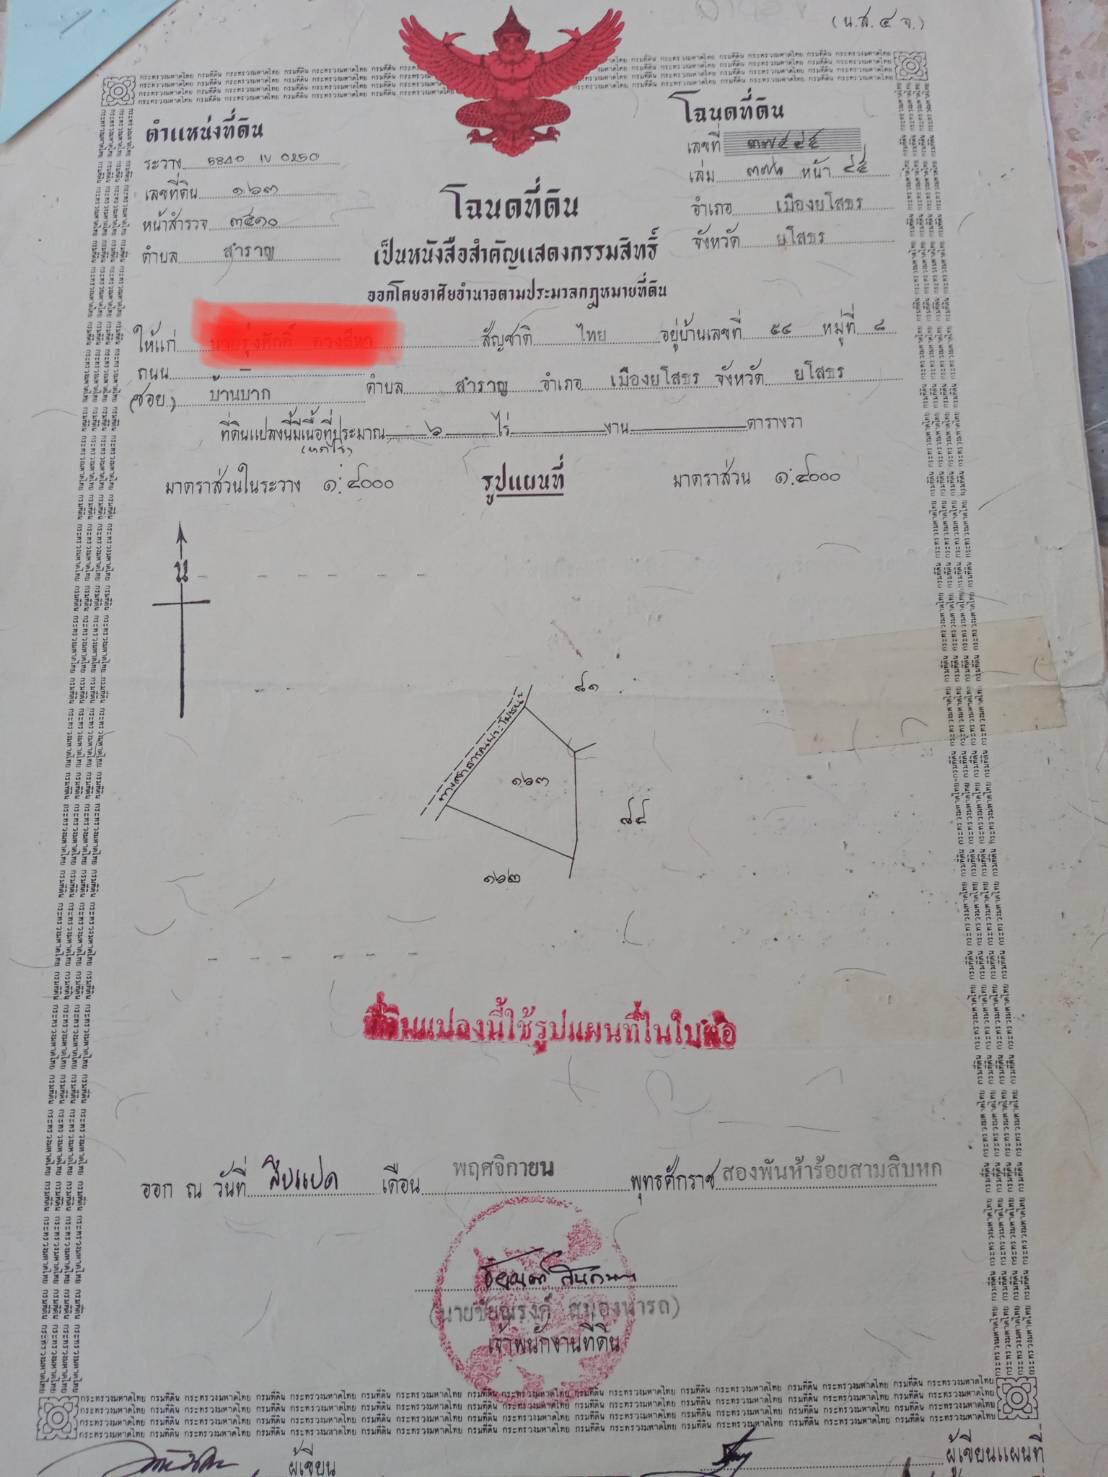 (น.ส. ๔ จ.)
ตำแหน่งที่ดิน
ระวาง 5840 IV 0250
เลขที่ดิน ๑๖๓
หน้าสำรวจ ๓๔๑๐
ตำบล สำราญ
โฉนดที่ดิน
เลขที่
เล่ม หน้า
อำเภอ เมืองยโสธร
จังหวัด ยโสธร
โฉนดที่ดิน
เป็นหนังสือสำคัญแสดงกรรมสิทธิ์
ออกโดยอาศัยอำนาจตามประมวลกฎหมายที่ดิน
ให้แก่ สัญชาติ ไทย อยู่บ้านเลขที่ ๕๔ หมู่ที่ ๘
ถนน
(ซอย) บ้านบาก ตำบล สำราญ อำเภอ เมืองยโสธร จังหวัด ยโสธร
ที่ดินแปลงนี้มีเนื้อที่ประมาณ ๖ ไร่ งาน ตารางวา
(หกไร่)
มาตราส่วนในระวาง ๑:๔๐๐๐ รูปแผนที่ มาตราส่วน ๑:๔๐๐๐
น
๘๑
ทางสาธารณประโยชน์
๑๖๓
๗๔
๑๖๒
ที่ดินแปลงนี้ใช้รูปแผนที่ในใบต่อ
ออก ณ วันที่ สิบแปด เดือน พฤศจิกายน พุทธศักราช สองพันห้าร้อยสามสิบหก
เจ้าพนักงานที่ดิน
กระทรวงมหาดไทย กรมที่ดิน
ผู้เขียน ผู้เขียนแผนที่